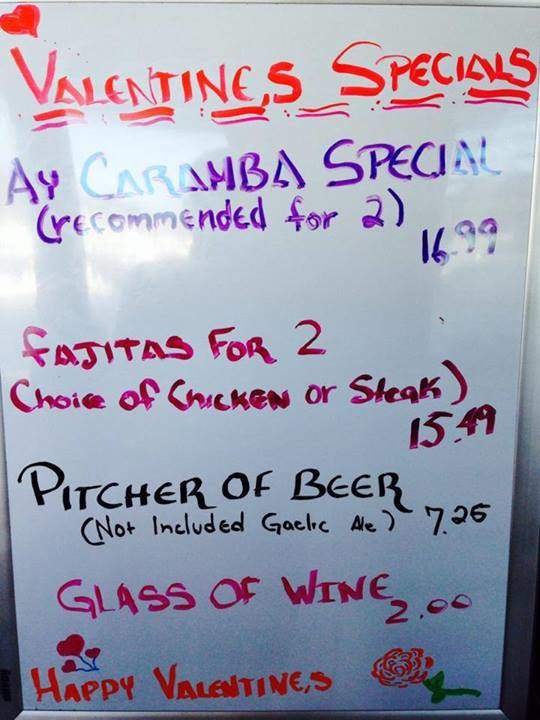 VALENTINE,S SPECIALS
AY CARAMBA SPECIAL
(recommended for 2)
16.99
FAJITAS FOR 2
Choice of CHICKEN or Steak)
15.49
PITCHER OF BEER
(Not Included Gaelic Ale) 7.25
GLASS OF WINE
2.00
HAPPY VALENTINE,S